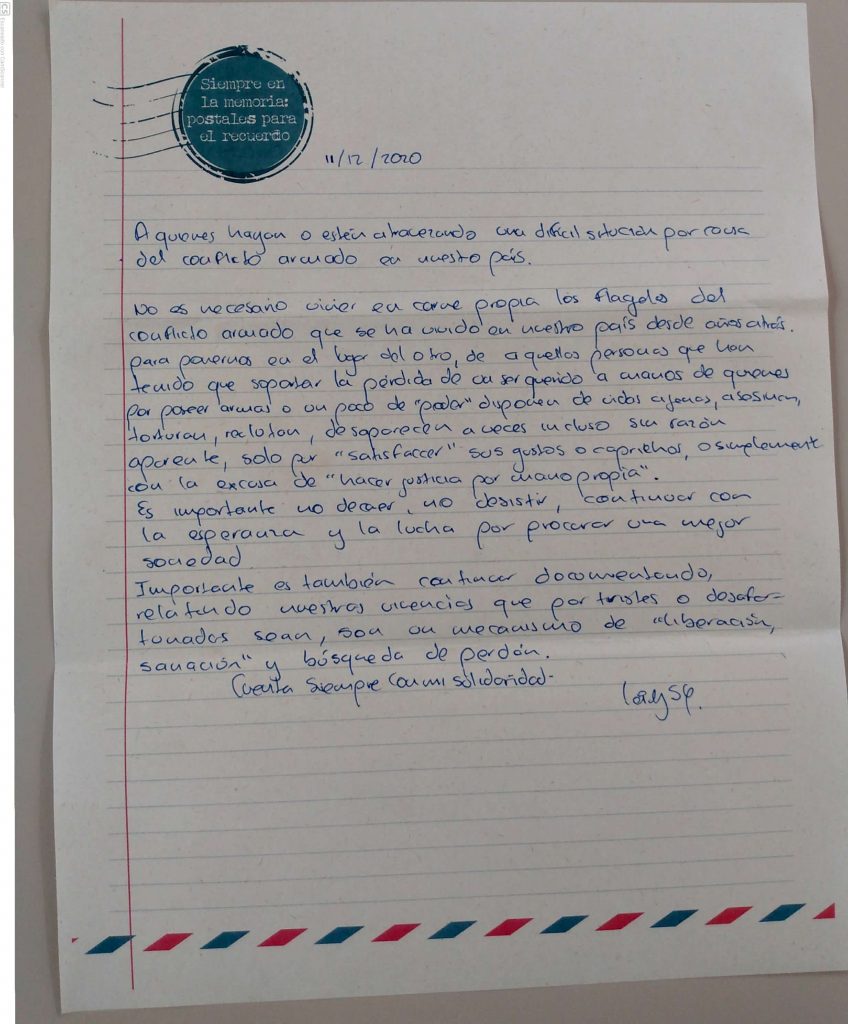 CS
Escaneado con CamScanner
Siempre en
la memoria:
postales para
el recuerdo
11/12/2020
A quienes hayan o estén atravezando una difícil situción por causa
del conflicto armado en nuestro país.
No es necesario vivier en carne propia los flagelos del
conflicto armado que se ha vivido en nuestro país desde años atrás.
para ponernos en el lugar del otro, de aquellas personas que han
tenido que soportar la pérdida de un ser querido a manos de quienes
por poseer armas o un poco de "poder" disponen de vidas ajenas, asesinan,
torturan, reclutan, desaparecen a veces incluso sin razón
aparente, solo por "satisfaccer" sus gustos o caprichos, o simplemente
con la excusa de "hacer justicia por mano propia".
Es importante no decaer, no desistir, continuar con
la esperanza y la lucha por procurar una mejor
sociedad
Importante es también continuar documentando,
relatando nuestras vivencias que por tristes o desafor-
tunadas sean, son un mecanismo de "liberación,
sanación" y búsqueda de perdón.
Cuenta siempre con mi solidaridad.